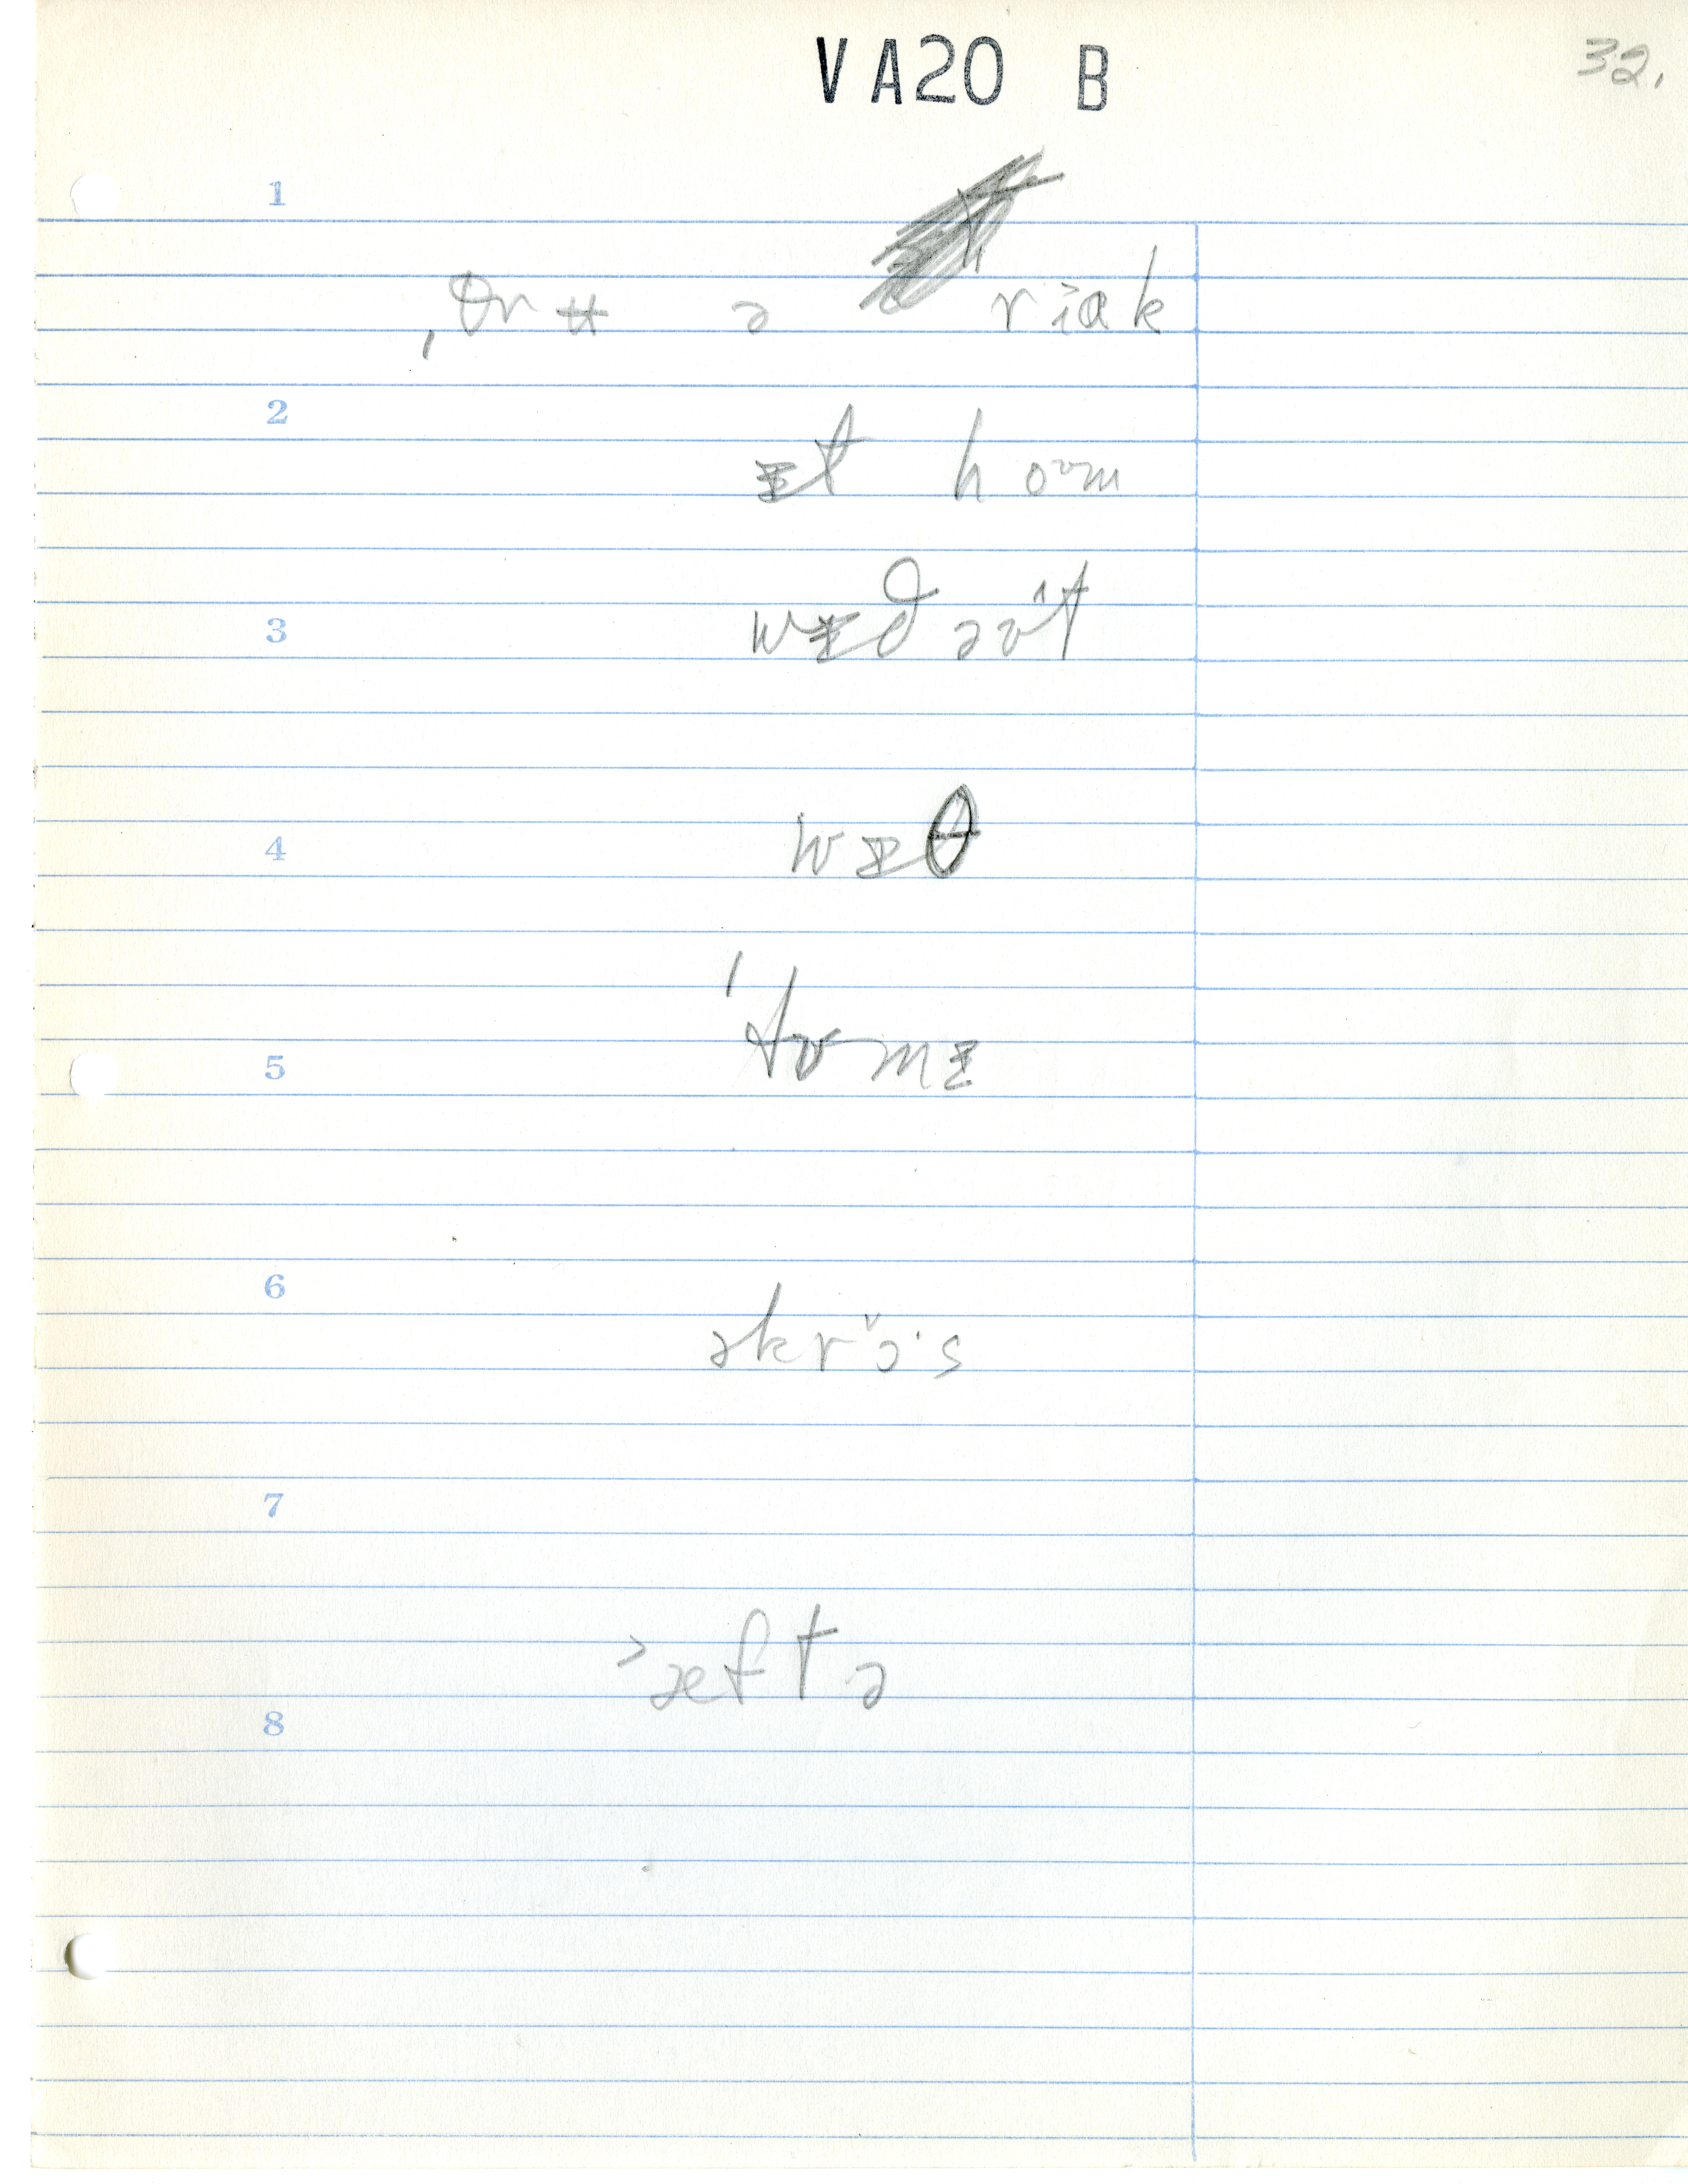 VA20 B
32.
1
ˌθrʉ ə riɑk
2
ᵻt hoʊm
3
wᵻðəʊt
4
wᵻθ
5
ˈtʊmᵻ
6
əkrɔ̌·s
7
˃æftə
8